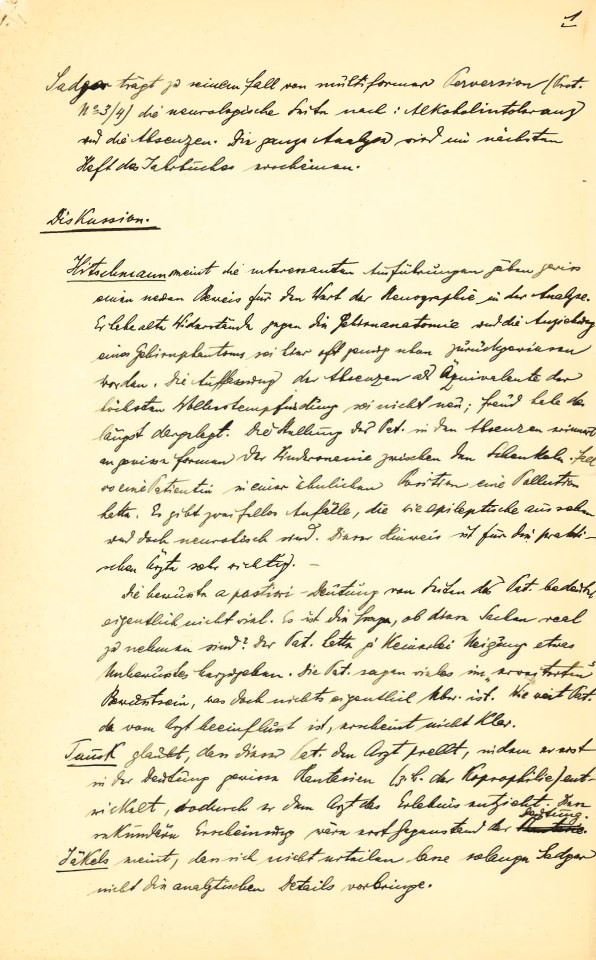 1
Sadger trägt zu seinem Fall von multiformer Perversion (Prot.
No 3/4) die neurologische Seite nach: Alkoholintoleranz
und die Absenzen. Die ganze Analyse wird im nächsten
Heft des Jahrbuches erscheinen.
Diskussion.
Hitschmann meint die interessanten Ausführungen gäben gewiss
einen neuen Beweis für den Wert der Monographie in der Analyse.
Er habe alte Widerstände gegen die Gehirnanatomie und die Anziehung
eines Gehirnphantoms, sei hier oft genug schon zurückgewiesen
worden. Die Auffassung der Absenzen als Äquivalente der
höchsten Wollustempfindung sei nicht neu; Freud habe das
längst dargelegt. Die Stellung des Pat. in den Absenzen erinnert
an gewisse Formen der Kinderonanie zwischen den Schenkeln. Fall
wo eine Patientin in einer ähnlichen Position eine Pollution
hatte. Es gibt zweifellos Anfälle, die wie epileptische aussehen
und doch neurotisch sind. Dieser Hinweis ist für die prakti-
schen Ärzte sehr wichtig. –
Die bewusste a posteriori-Deutung von Seiten des Pat. bedeutet
eigentlich nicht viel. Es ist die Frage, ob diese Sachen real
zu nehmen sind? Der Pat. hatte ja keinerlei Neigung etwas
Unbewusstes herzugeben. Die Pat. sagen vieles im „erweiterten"
Bewusstsein, was doch nichts eigentlich Ubw. ist. Wie weit Pat.
da vom Arzt beeinflusst ist, erscheint nicht klar.
Tausk glaubt, dass dieser Pat. den Arzt prellt, indem er erst
in der Deutung gewisse Phantasien (z.B. der Koprophilie) ent-
wickelt, wodurch er dem Arzt das Erlebnis entzieht. Den
sekundären Erscheinung wäre erst Gegenstand der Deutung.
Jäkels meint, dass sich nicht urteilen lasse solange Sadger
nicht die analytischen Details vorbringe.